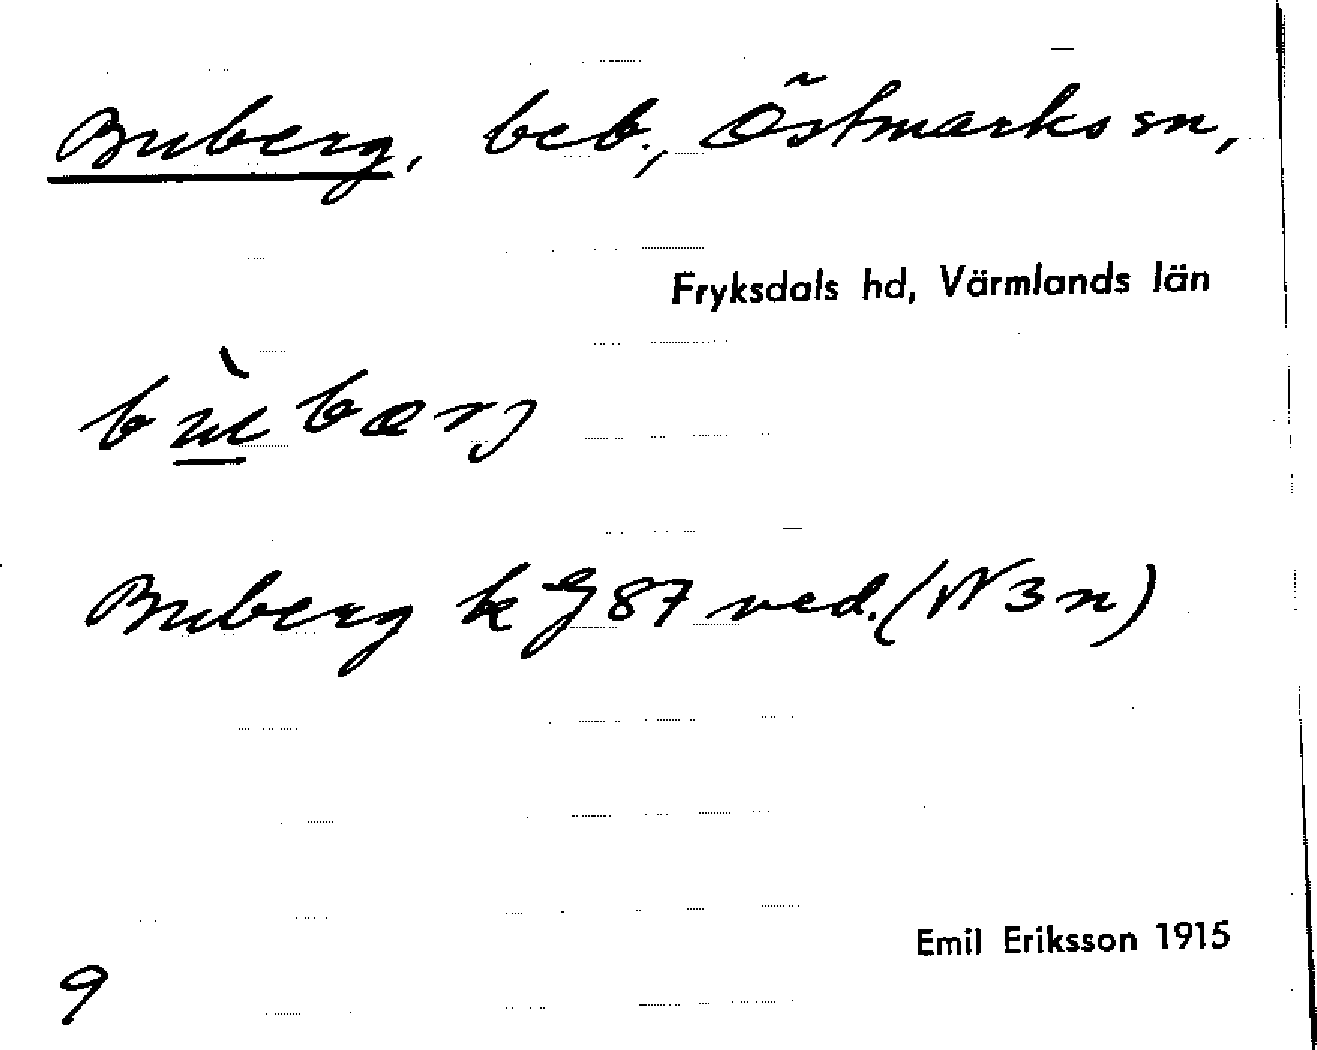 Buberg, beb., Östmarks sn,
Fryksdals hd, Värmlands län
bù̲bærj
Buberg k GJ 87 ned. (N 3 n)
Emil Eriksson 1915
9